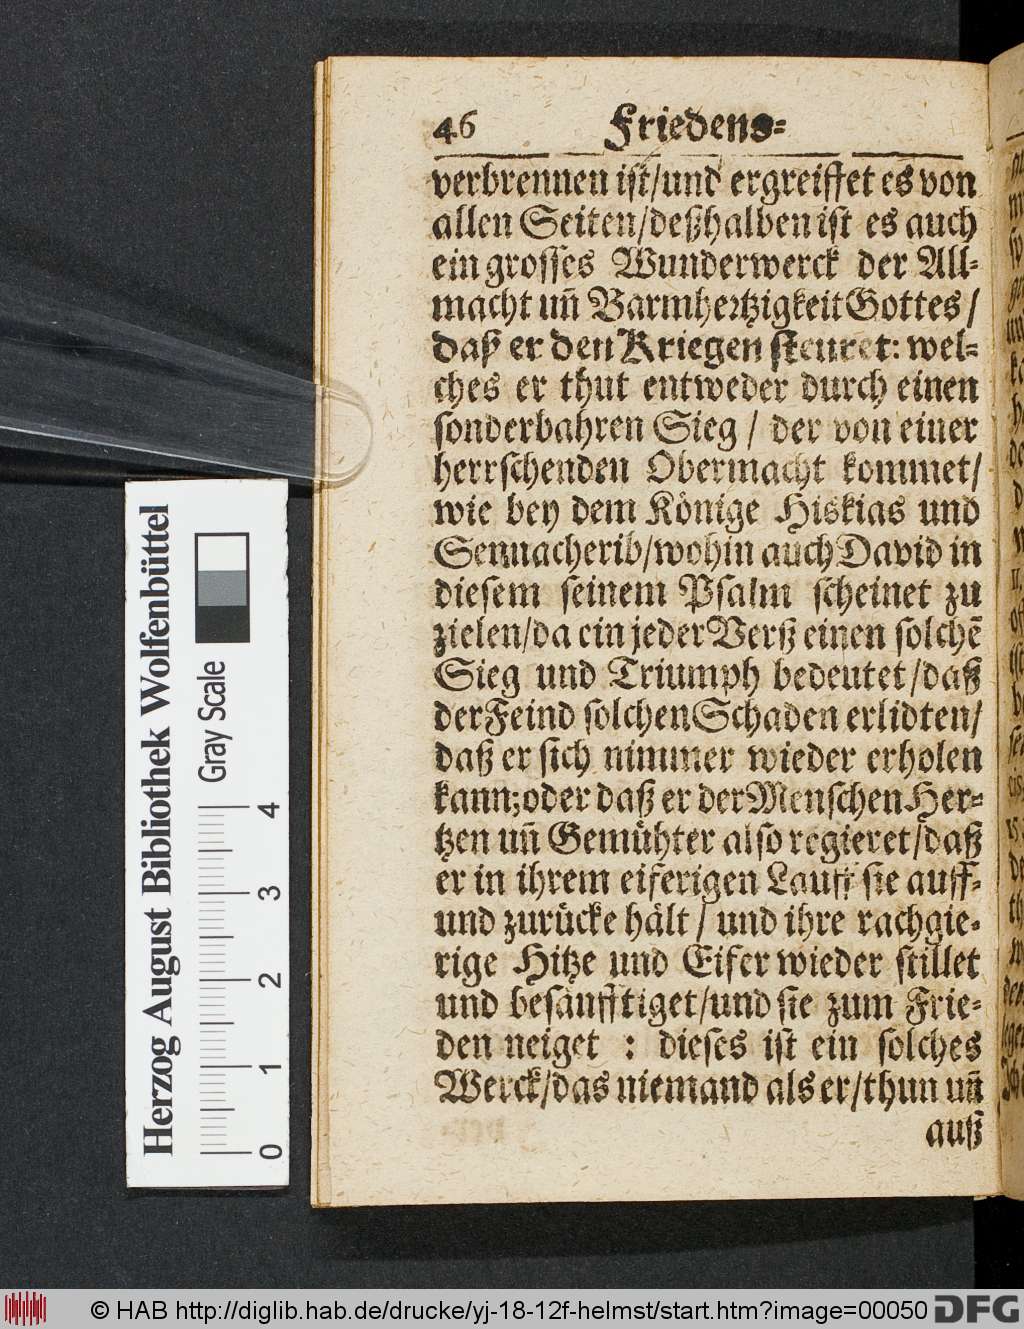 46 Friedens-
verbrennen ist/und ergreiffet es von
allen Seiten/deßhalben ist es auch
ein grosses Wunderwerck der All-
macht uñ Barmhertzigkeit Gottes/
daß er den Kriegen steuret: wel-
ches er thut entweder durch einen
sonderbahren Sieg / der von einer
herrschenden Obermacht kommet/
wie bey dem Könige Hiskias und
Sennacherib/wohin auch David in
diesem seinem Psalm scheinet zu
zielen/da ein jeder Verß einen solchẽ
Sieg und Triumph bedeutet/daß
der Feind solchen Schaden erlidten/
daß er sich nimmer wieder erholen
kann; oder daß er der Menschen Her-
tzen uñ Gemühter also regieret/daß
er in ihrem eiferigen Lauff sie auff-
und zurücke hält / und ihre rachgie-
rige Hitze und Eifer wieder stillet
und besänfftiget/und sie zum Frie-
den neiget : dieses ist ein solches
Werck/das niemand als er/thun uñ
auß
Herzog August Bibliothek Wolfenbüttel
Gray Scale
0 1 2 3 4
© HAB http://diglib.hab.de/drucke/yj-18-12f-helmst/start.htm?image=00050
DFG